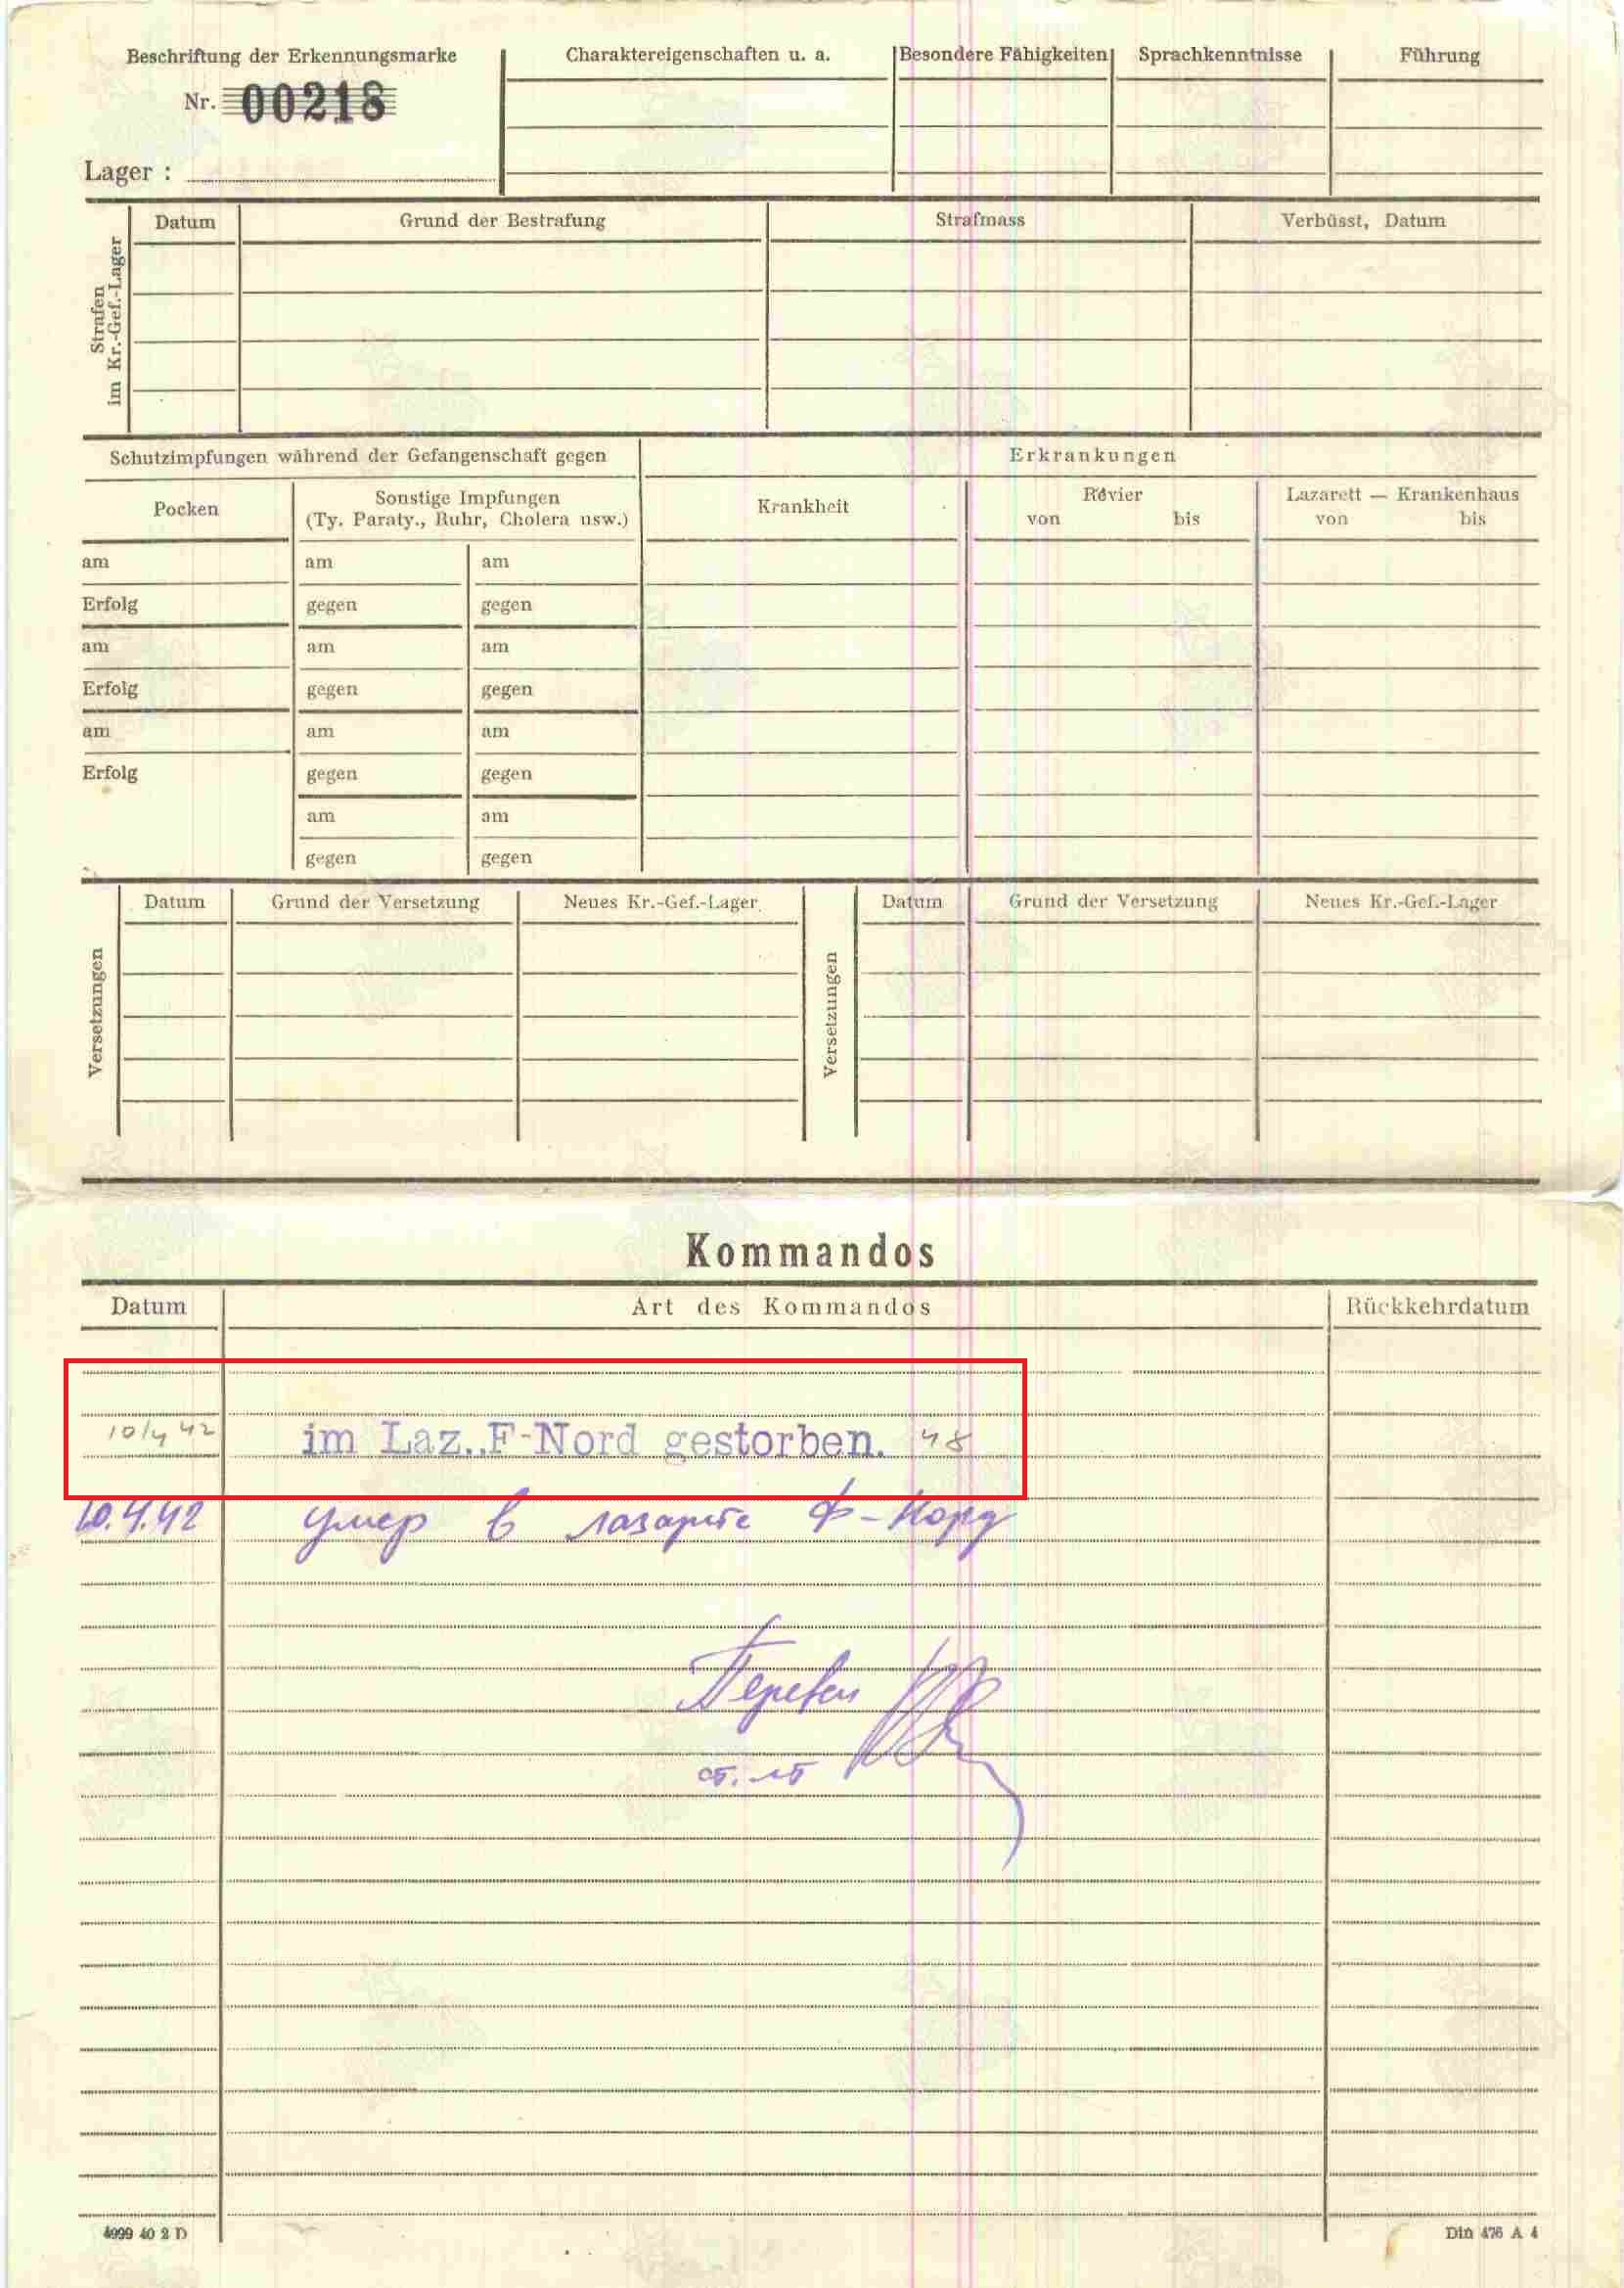 Beschriftung der Erkennungsmarke
Nr. 00218
Lager :
Charaktereigenschaften u. a.
Besondere Fähigkeiten
Sprachkenntnisse
Führung
Strafen
im Kr.-Gef.-Lager
Datum
Grund der Bestrafung
Strafmass
Verbüsst, Datum
Schutzimpfungen während der Gefangenschaft gegen
Erkrankungen
Pocken
Sonstige Impfungen
(Ty. Paraty., Ruhr, Cholera usw.)
Krankheit
Revier
von bis
Lazarett — Krankenhaus
von bis
am am am
Erfolg gegen gegen
am am am
Erfolg gegen gegen
am am am
Erfolg gegen gegen
am am
gegen gegen
Versetzungen
Datum
Grund der Versetzung
Neues Kr.-Gef.-Lager
Versetzungen
Datum
Grund der Versetzung
Neues Kr.-Gef.-Lager
Kommandos
Datum
Art des Kommandos
Rückkehrdatum
10/4 42 im Laz.,F-Nord gestorben. 48
10.4.42 умер в лазарете Ф-Норд
Перевел
ст. лт
4999 40 2 D
Din 476 A 4